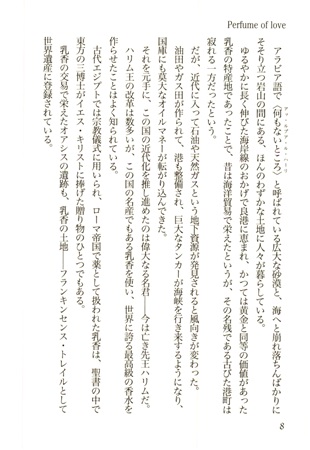 Perfume of love
アラビア語で〈何もないところ〉と呼ばれている広大な砂漠と、海へと崩れ落ちんばかりに
そそり立つ岩山の間にある、ほんのわずかな土地に人々が暮らしている。
ゆるやかに長く伸びた海岸線のおかげで良港に恵まれ、かつては黄金と同等の価値があった
乳香の特産地であったことで、昔は海洋貿易で栄えたというが、その名残である古びた港町は
寂れる一方だったという。
だが、近代に入って石油や天然ガスという地下資源が発見されると風向きが変わった。
油田やガス田が作られて、港も整備され、巨大なタンカーが海峡を行き来するようになり、
国庫にも莫大なオイルマネーが転がり込んできた。
それを元手に、この国の近代化を推し進めたのは偉大なる名君――今は亡き先王ハリムだ。
ハリム王の改革は数多いが、この国の名産でもある乳香を使い、世界に誇る最高級の香水を
作らせたことはよく知られている。
古代エジプトでは宗教儀式に用いられ、ローマ帝国で薬として扱われた乳香は、聖書の中で
東方の三博士がイエス・キリストに捧げた贈り物のひとつでもある。
乳香の交易で栄えたオアシスの遺跡も、乳香の土地――フランキンセンス・トレイルとして
世界遺産に登録されている。
8